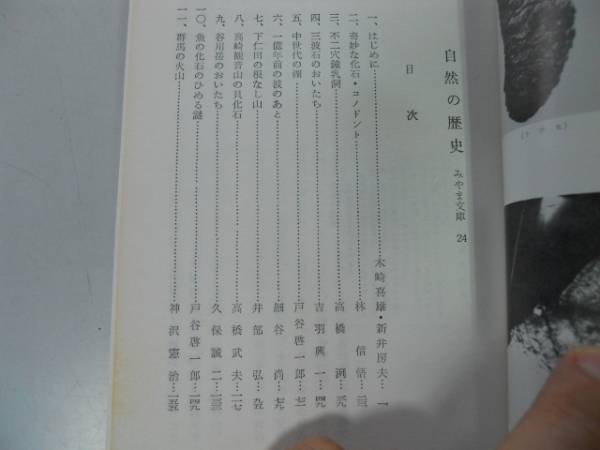 自然の歴史 みやま文庫 24
目次
一、はじめに……木崎喜雄・新井房夫…一
二、奇妙な化石・コノドント……林信悟…三
三、不二穴鐘乳洞……高橋洌…元
四、三波石のおいたち……吉羽興一…四九
五、中世代の湖……戸谷啓一郎…七一
六、一億年前の波のあと……細谷尚…七九
七、下仁田の根なし山……井部弘…九五
八、高崎観音山の貝化石……高橋武夫…一一七
九、谷川岳のおいたち……久保誠二…一三三
一〇、魚の化石のひめる謎……戸谷啓一郎…一四九
一一、群馬の火山……神沢憲治…一五五